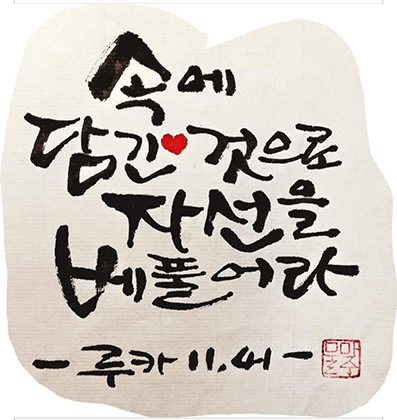 속에
담긴❤것으로
자선을
베풀어라
- 루카 11.41 -